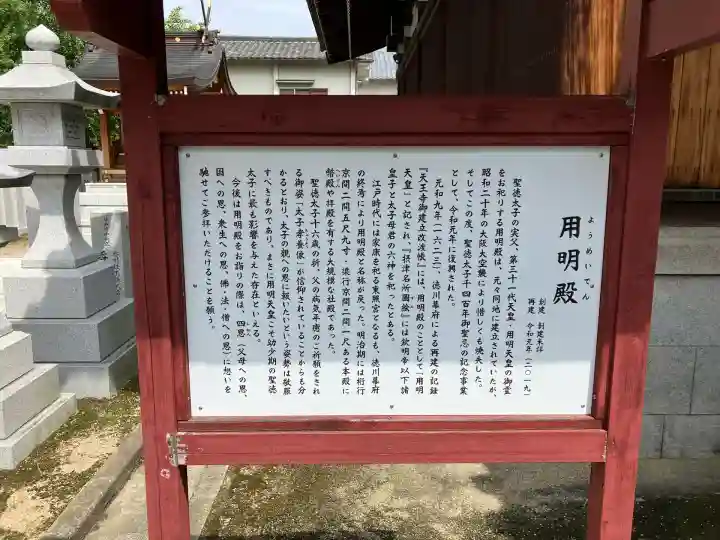 ようめいでん
用明殿
創建 創建未詳
再建 令和元年(二〇一九)
聖徳太子の実父、第三十一代天皇・用明天皇の御霊
をお祀りする用明殿は、元々同地に建立されていたが、
昭和二十年の大阪大空襲により惜しくも焼失した。
そしてこの度、聖徳太子千四百年御聖忌の記念事業
として、令和元年に復興された。
元和九年(一六二三)、徳川幕府による再建の記録
『天王寺御建立改渡帳』には、用明殿のこととして「用明
天皇」と記され、『摂津名所圖絵』には欽明帝以下諸
皇子と太子母君の六神を祀ったとある。
江戸時代には家康を祀る東照宮となるも、徳川幕府
の終焉により用明殿と名称が戻った。明治期には桁行
京間二間五尺九寸、梁行京間二間一尺ある本殿に
幣殿や拝殿を有する大規模な社殿であった。
聖徳太子十六歳の折、父の病気平癒のご祈願をされ
る御姿「太子孝養像」が信仰されていることからも分
かるとおり、太子の親への恩に報いたいという姿勢は敬服
すべきものであり、まさに用明天皇こそ幼少期の聖徳
太子に最も影響を与えた存在といえる。
今後は用明殿をお詣りの際は、四恩(父母への恩、
国への恩、衆生への恩、佛、法、僧への恩)に想いを
馳せてご参拝いただけることを願う。